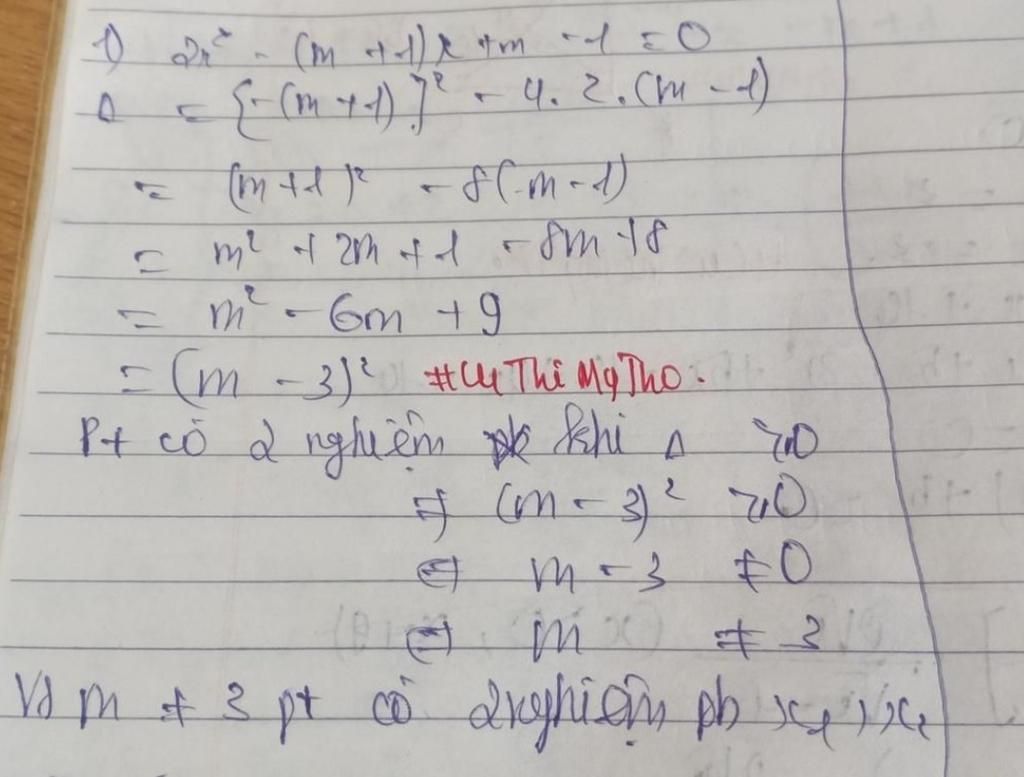 1) 2x² - (m + 1)x + m - 1 = 0
Δ = [-(m + 1)]² - 4.2.(m - 1)
= (m + 1)² - 8(m - 1)
= m² + 2m + 1 - 8m + 8
= m² - 6m + 9
= (m - 3)² #CụThiMỹTho.
Pt có 2 nghiệm khi Δ ≥ 0
⇒ (m - 3)² ≥ 0
⇔ m - 3 ≠ 0
⇔ m ≠ 3
Vs m ≠ 3 pt có 2 nghiệm pb x₁, x₂